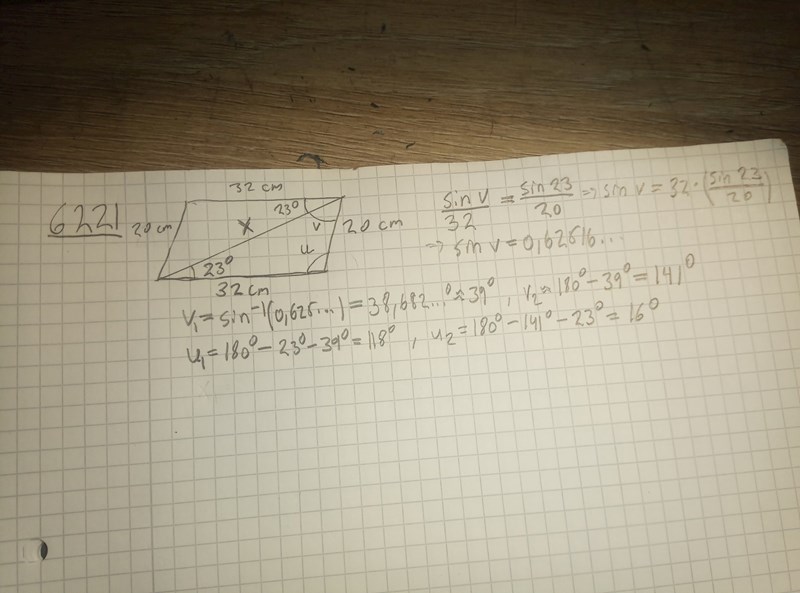 6221
32 cm
20 cm
23°
x
v
20 cm
u
23°
32 cm
sin v / 32 = sin 23 / 20 => sin v = 32 · (sin 23 / 20)
=> sin v = 0,62516...
v₁ = sin⁻¹(0,625...) = 38,682...° ≈ 39° , v₂ ≈ 180° - 39° = 141°
u₁ = 180° - 23° - 39° = 118° , u₂ = 180° - 141° - 23° = 16°